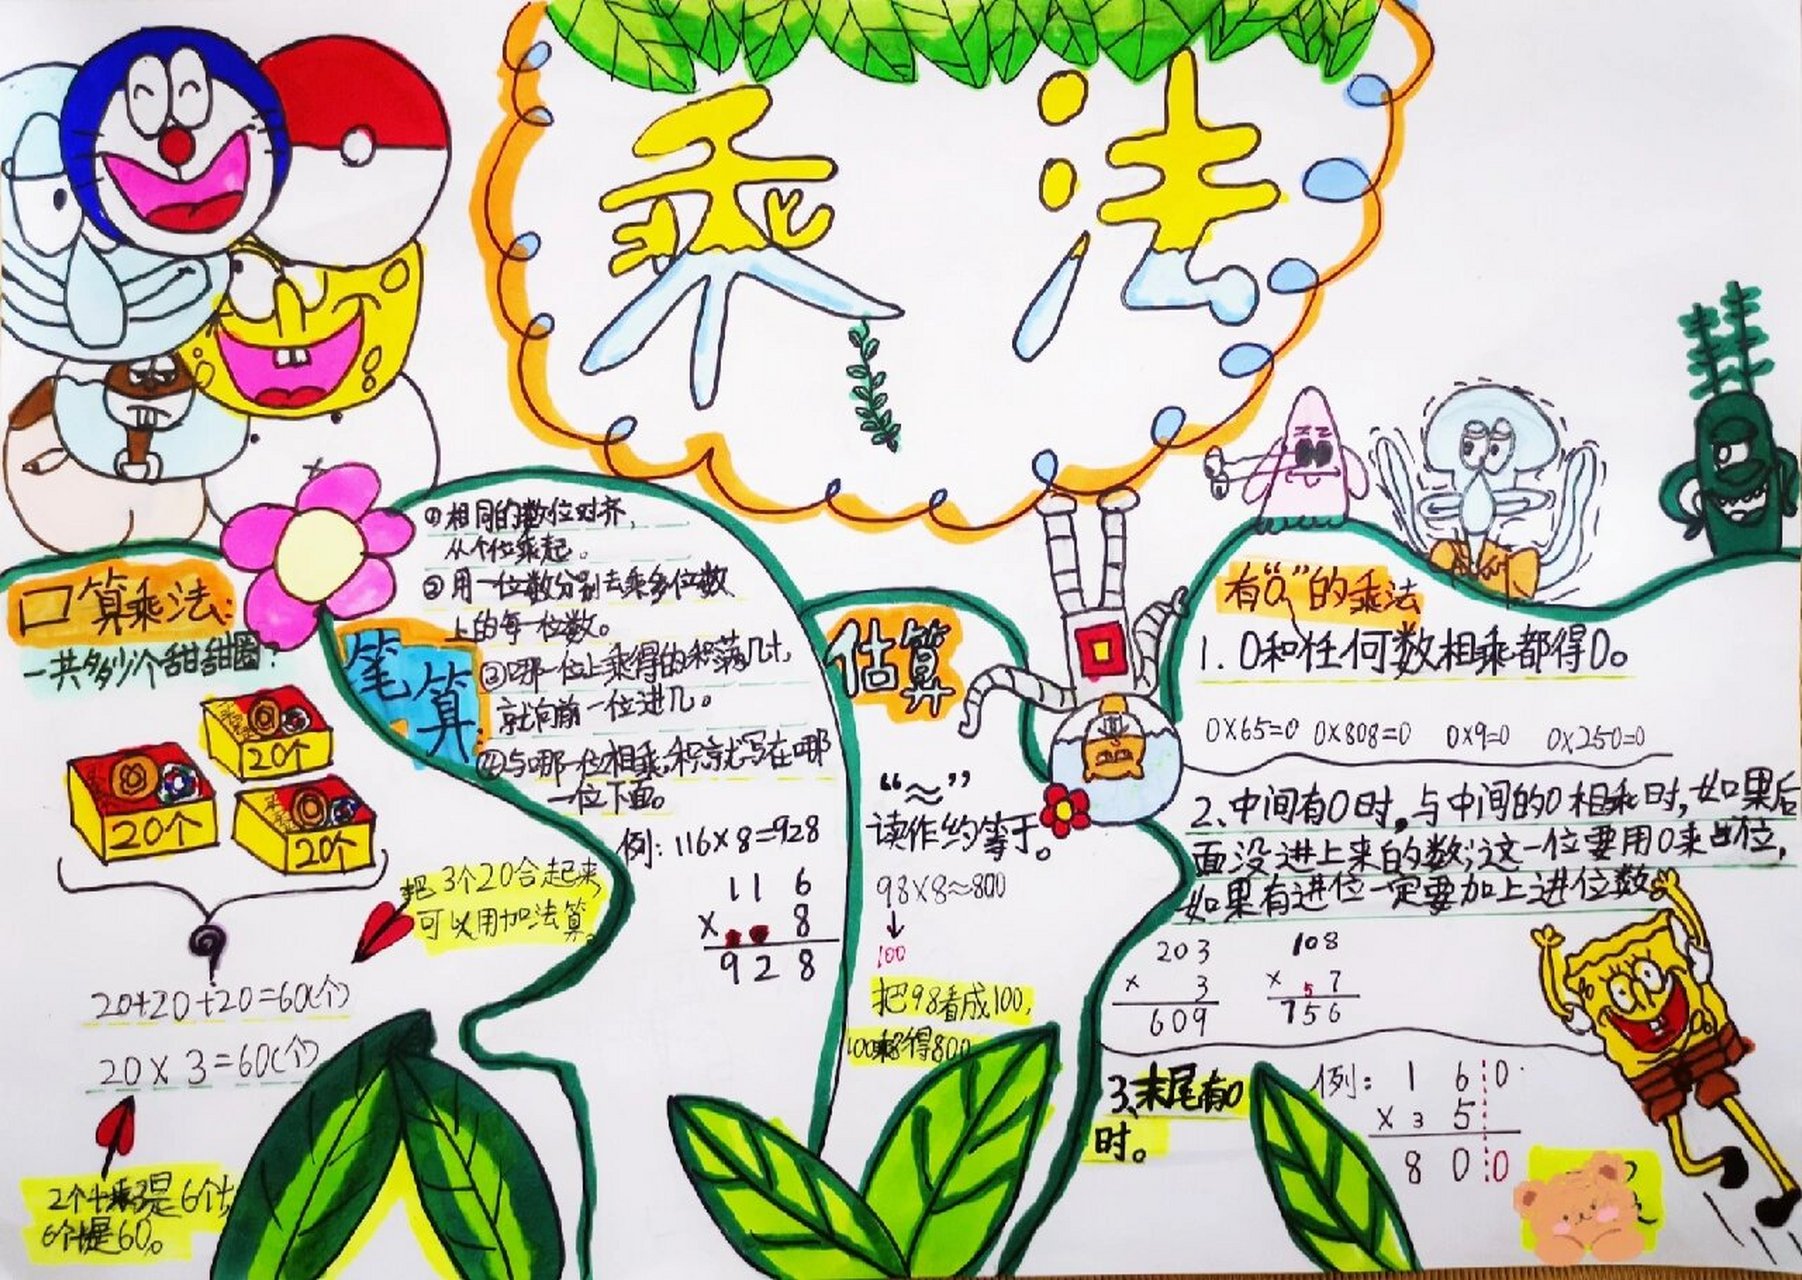 乘法
口算乘法:
一共多少个甜甜圈?
20个
20个
20个
把3个20合起来,
可以用加法算。
20+20+20=60(个)
20×3=60(个)
2个十乘3是6个十,
6个十是60。
笔算
①相同的数位对齐,
从个位乘起。
②用一位数分别去乘多位数
上的每一位数。
③哪一位上乘得的积满几十,
就向前一位进几。
④与哪一位相乘,积就写在哪
一位下面。
例:116×8=928
116
× 8
928
估算
“≈”
读作约等于。
98×8≈800
↓
100
把98看成100,
100乘8得800
有“0”的乘法
1. 0和任何数相乘都得0。
0×65=0 0×808=0 0×9=0 0×250=0
2、中间有0时,与中间的0相乘时,如果后
面没进上来的数,这一位要用0来占位,
如果有进位一定要加上进位数。
203
× 3
609
108
× 5 7
756
3、末尾有0
时。
例: 1 6 0
× 3 5
8 0 0